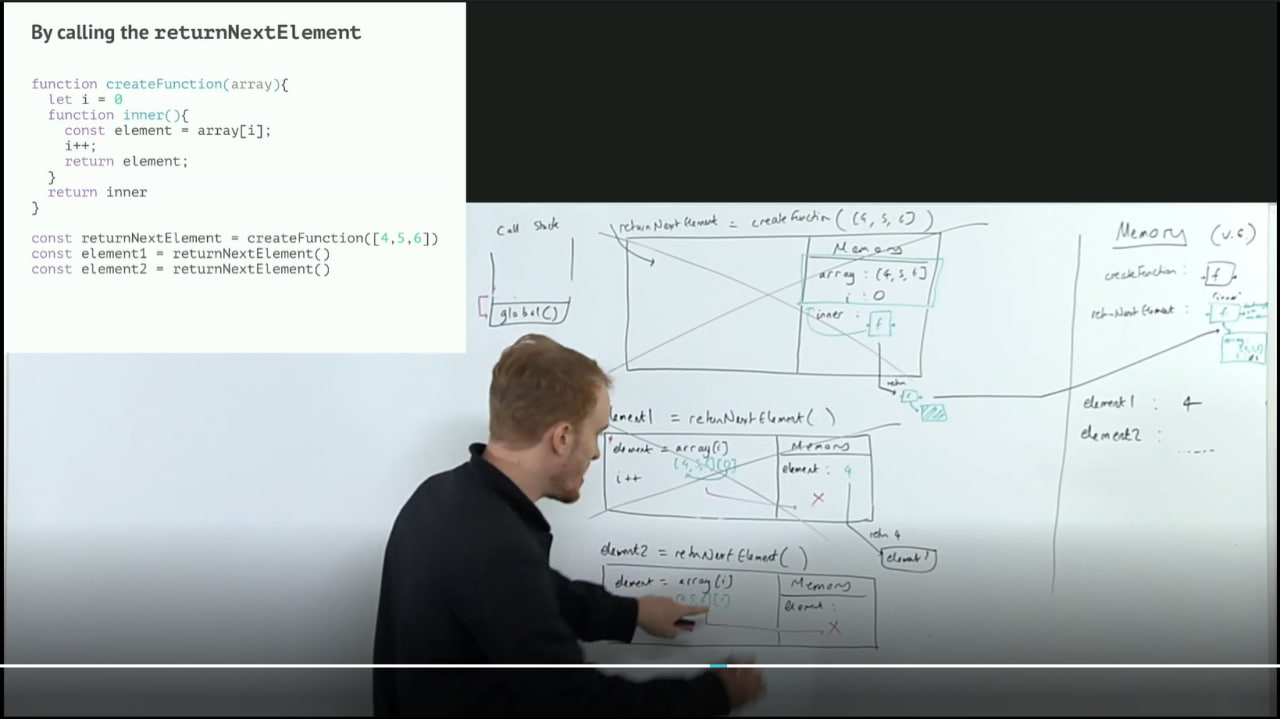 By calling the returnNextElement
function createFunction(array){
let i = 0
function inner(){
const element = array[i];
i++;
return element;
}
return inner
}
const returnNextElement = createFunction([4,5,6])
const element1 = returnNextElement()
const element2 = returnNextElement()
Call Stack
global()
returnNextElement = createFunction([4, 5, 6])
Memory
array : [4, 5, 6]
i : 0
inner : f
return
element1 = returnNextElement()
element = array[i]
[4,5,6][0]
i++
Memory
element : 4
X
return 4
element1
element2 = returnNextElement()
element = array[i]
Memory
element :
X
Memory
createFunction : f
"inner"
returnNextElement : f
array:
element1 : 4
element2 :